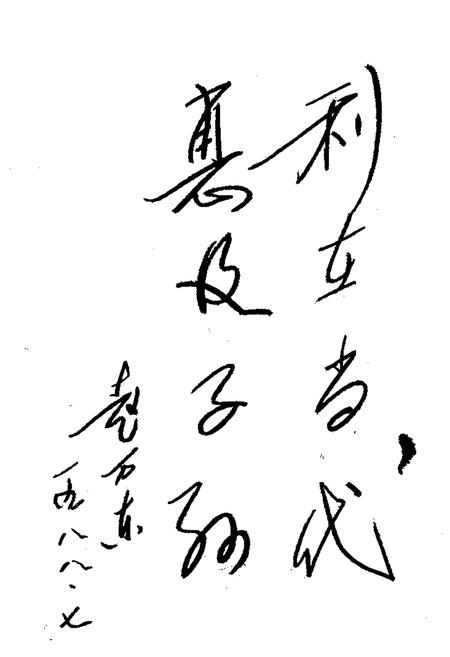 利在当代，
惠及子孙
赵万东
一九八八.七